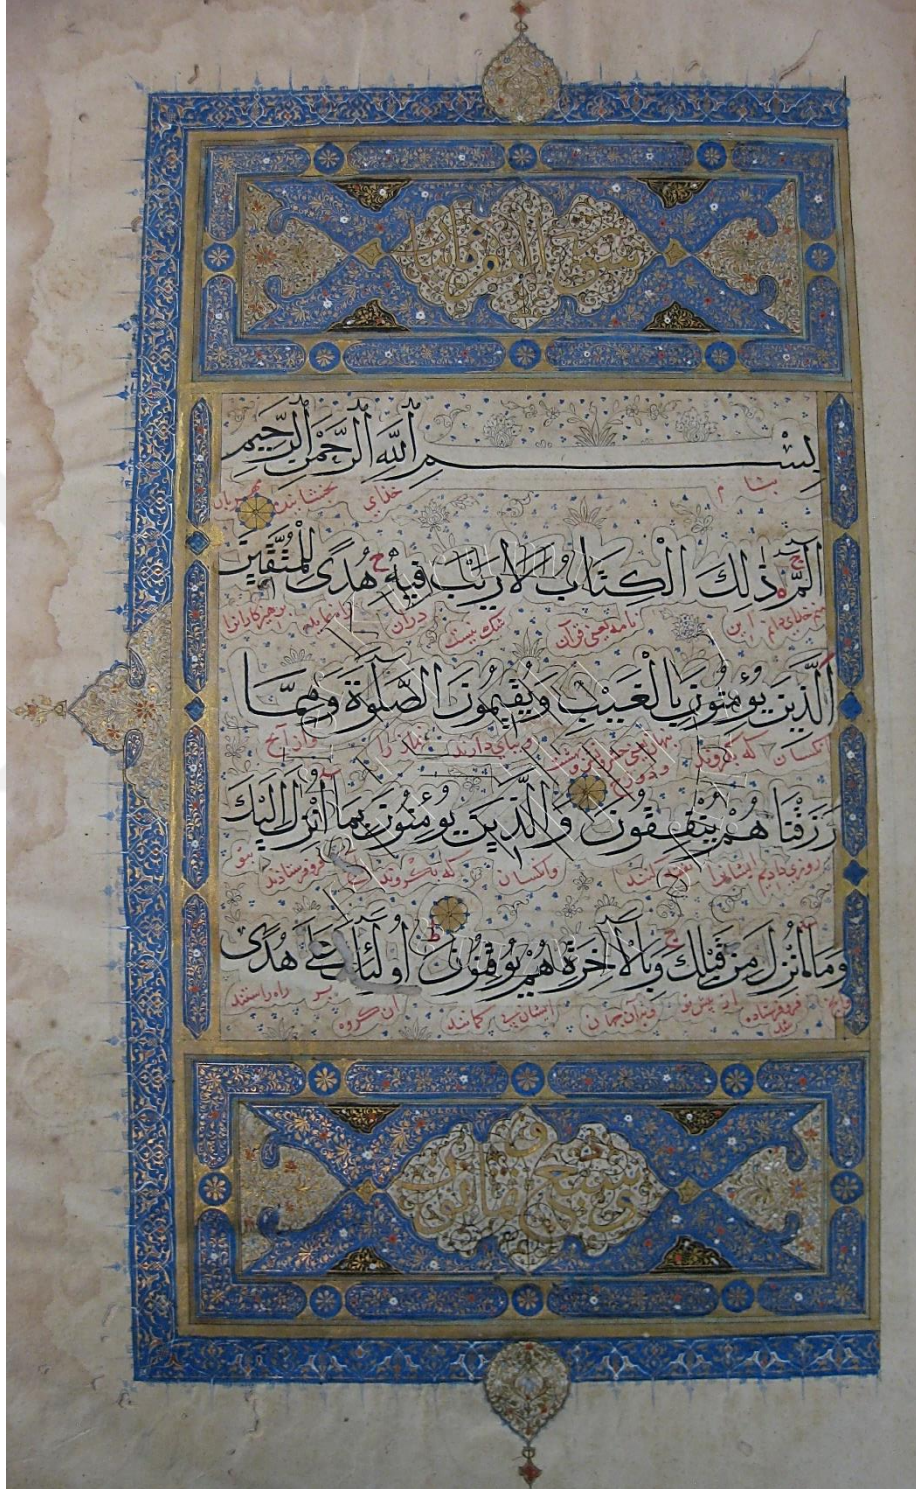 بِسْمِ اللَّهِ الرَّحْمٰنِ الرَّحِيمِ
بنام خدای بخشاینده مهربان
الٓمّٓ ذٰلِكَ الْكِتَابُ لَا رَيْبَ فِيهِ هُدًى لِلْمُتَّقِينَ
خدای دانم این نامه یعنی قرآن شک نیست دران راه نماینده پرهیزکارانرا
الَّذِينَ يُؤْمِنُونَ بِالْغَيْبِ وَيُقِيمُونَ الصَّلٰوةَ وَمِمَّا
انکسان که بگروند وبپای دارند نماز را وازانچ
رَزَقْنَاهُمْ يُنْفِقُونَ وَالَّذِينَ يُؤْمِنُونَ بِمَا أُنْزِلَ إِلَيْكَ
روزی دادیم ایشانرا کنند وانکسان که بگروند فرو فرستادند بتو
وَمَا أُنْزِلَ مِنْ قَبْلِكَ وَبِالْآخِرَةِ هُمْ يُوقِنُونَ أُولٰئِكَ عَلَى هُدًى
وانچ فرو فرستاده شد از پیش تو وبدان جهان ایشان بی گمانند ان گروه بر راه راستند